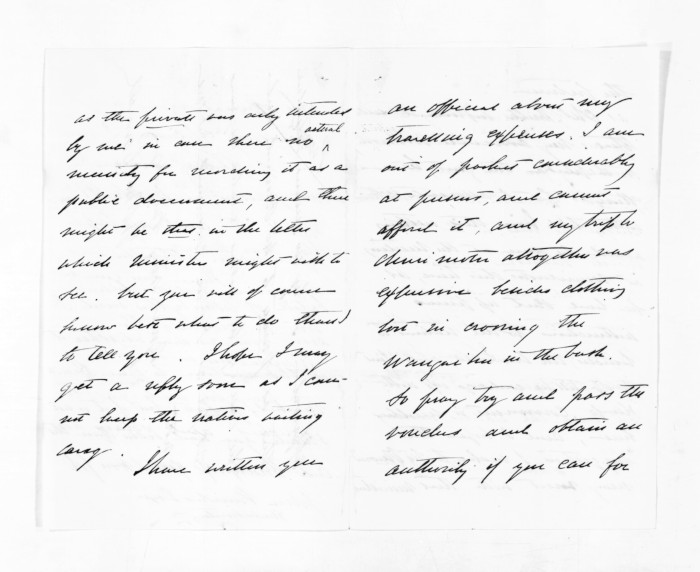 as the private was only intended
by me in case there no
actual
^
necessity for recording it as a
public document, and there
might be this. in the letter
which Minister might wish to
see. but you will of course
know best what to do than I
to tell you. I hope I may
get a reply soon as I can-
not keep the natives waiting
long.
I have written you
an official about my
travelling expenses. I am
out of pocket considerably
at present, and cannot
afford it, and my trip to
altogether was
expensive besides clothing
lost in crossing the
in the bush.
So pray try and pass the
voucher and obtain an
authority if you can for